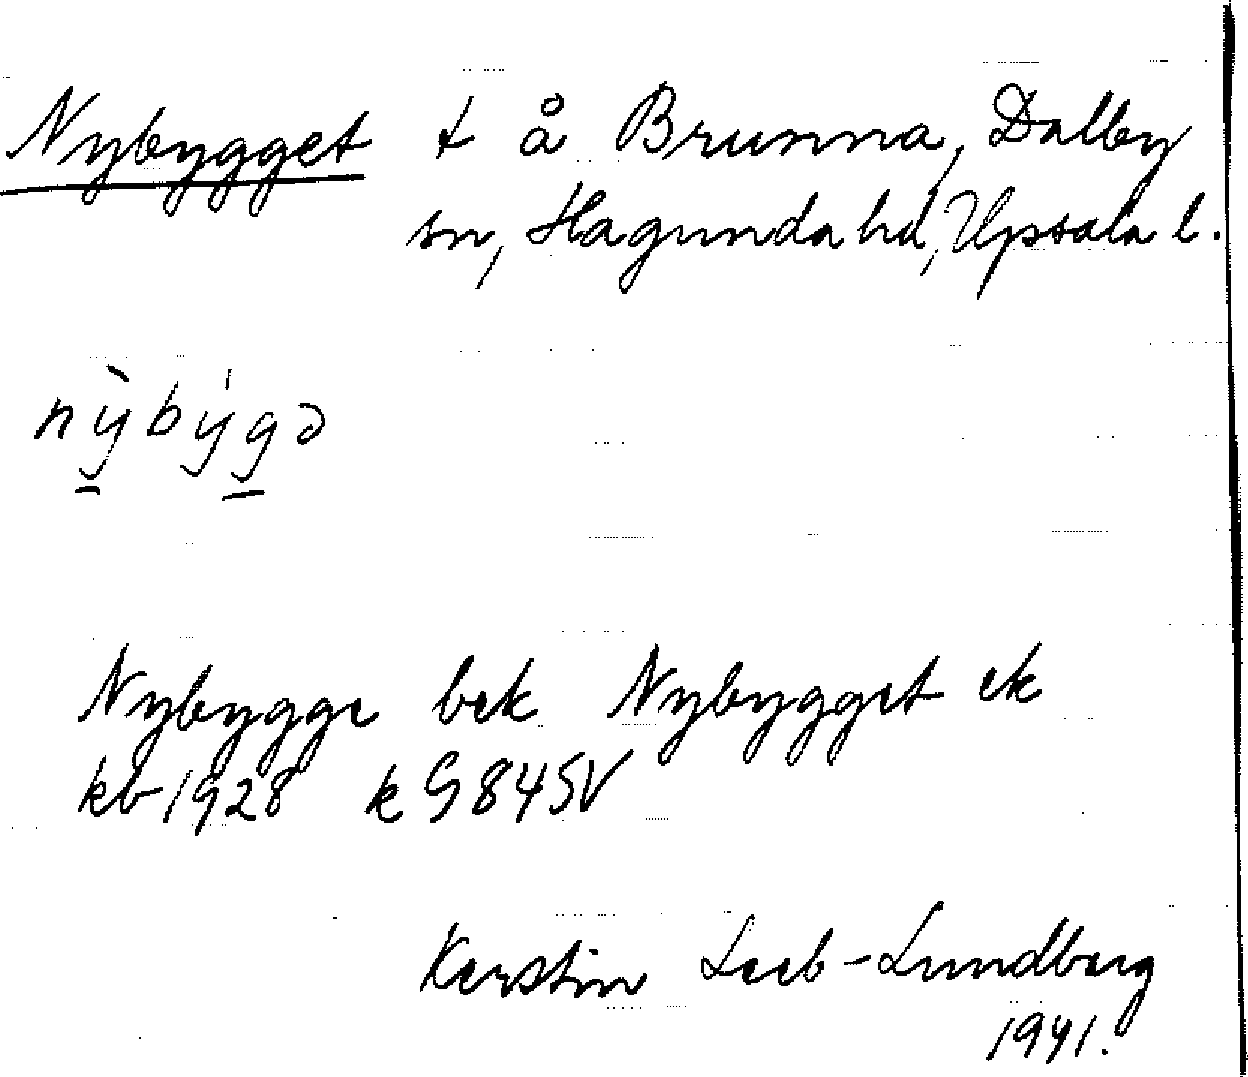 Nybygget t å Brunna, Dalby
sn, Hagunda hd, Upsala l.
nỳbýgə
Nybygge bek Nybygget ek
kb 1928 k G 84 SV
Kerstin Leeb-Lundberg
1941.